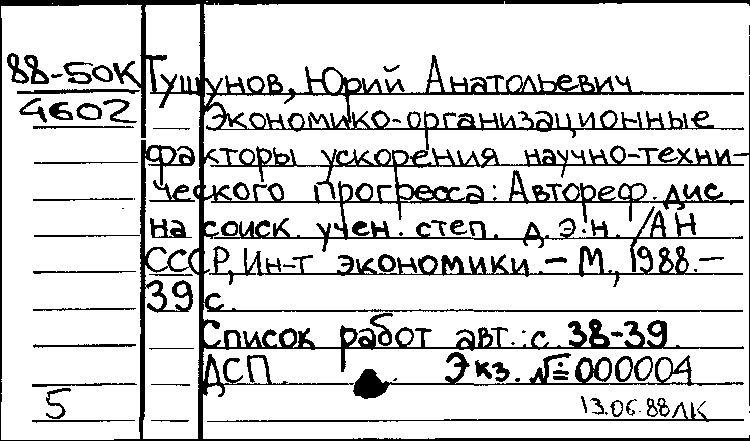 88-50К Тушунов, Юрий Анатольевич
4602 Экономико-организационные
факторы ускорения научно-техни-
ческого прогресса: Автореф. дис.
на соиск. учен. степ. д.э.н. /АН
СССР, Ин-т экономики. - М., 1988. -
39 с.
Список работ авт.: с. 38-39.
ДСП. Экз. №000004
5 13.06.88 ЛК